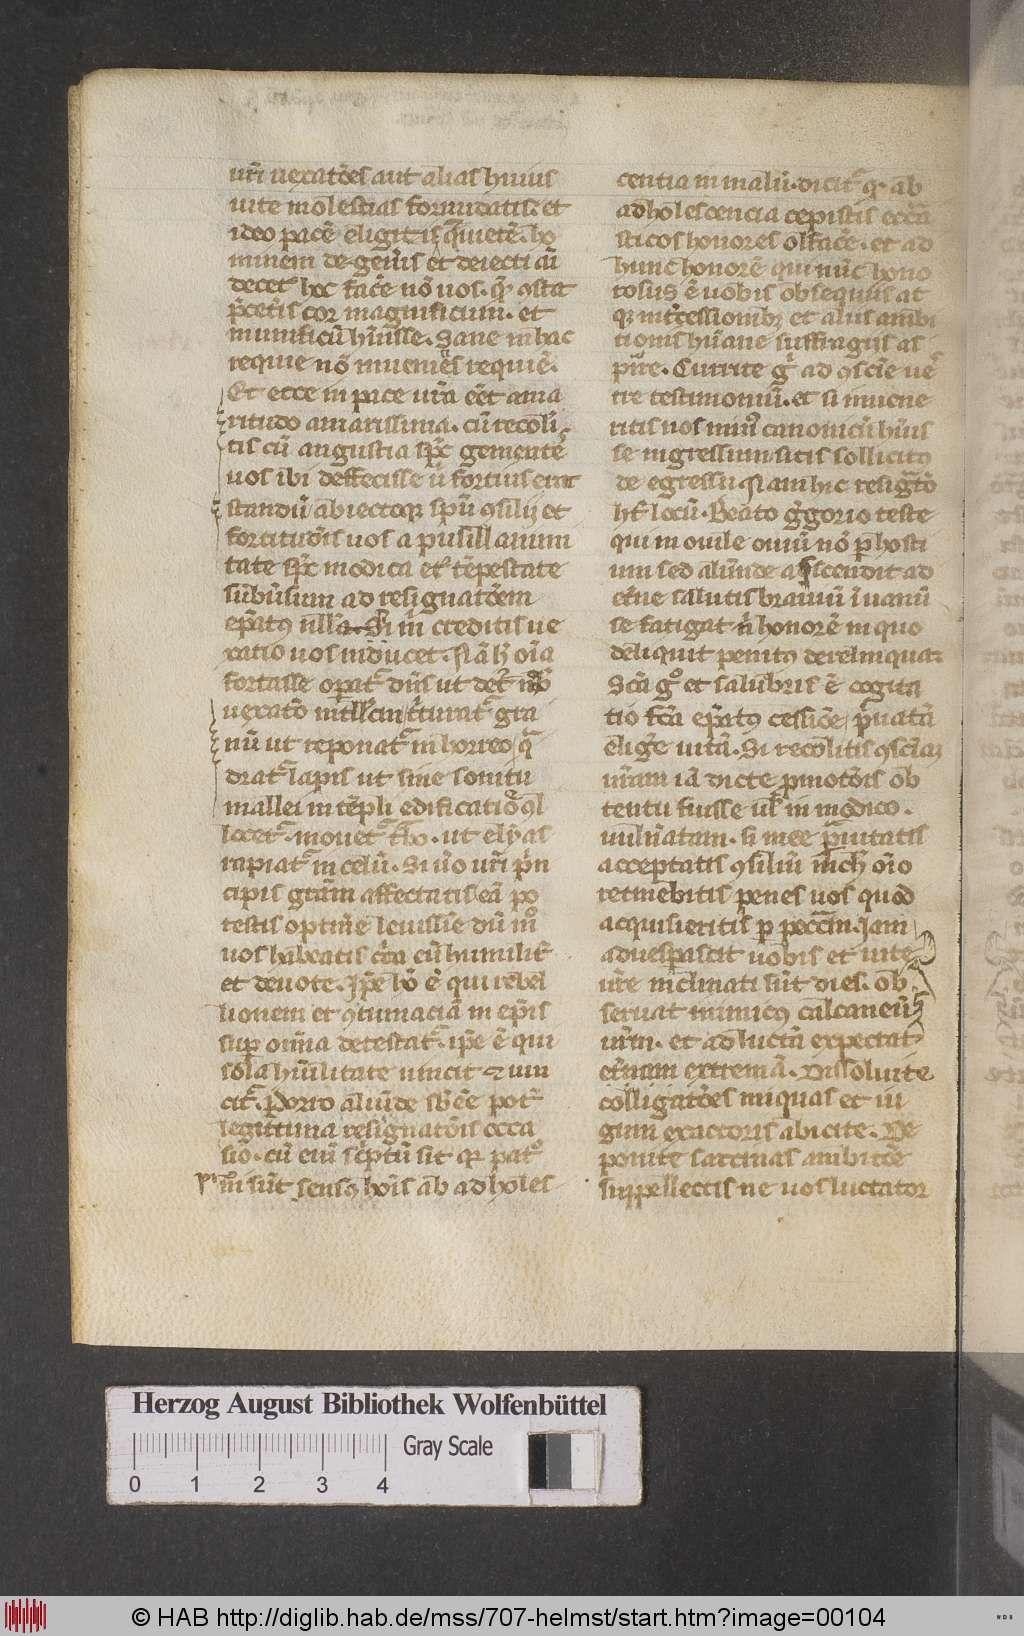 ur̄i uexatōes aut alias huius
uite molestias formidatis. et
ideo pacē eligitis quietē. ho
minem de geñis et deiecti aī
decet hoc facē nō uos. qr ꝯstat
cor magnificum. et
munificū hūisse. Sane in hac
requie nō inuenies requiē.
Et ecce in pace ur̄a eēt ama
ritudo amarissima. cū recoli
tis cū angustia sp̄c gementē
uos ibi deffecisse ū fortius erat
standū abiectoqꝫ sp̄u ꝯsilij et
fortitudīs uos a pusillanimi
tate sp̄c modica et tēpestate
subūsum ad resignatōem
ep̄atꝰ illa. Si m̄ creditis ue
xatio uos inducet. si ā h̄ oīa
fortasse opat̄ dn̄s ut det uob̄
uexatō intllc̄m t̄turat̄ gra
nū ut reponat̄ in horreo q̄
drat̄ lapis ut sine sonitu
mallei in tēpli edificatiōe ꝯl
locet̄. mouet̄ t̄bo. ut elyas
rapiat̄ in celū. Si uō ur̄i p̄n
cipis grām affectatis eā po
testis optinē leuissie dū mō
uos habeatis cū humilit̄
et deuote. Ip̄e hō ē qui rebel
lionem et ꝯtumaciā in ep̄is
suꝑ omīa detestat̄. ip̄e ē qui
sola hūilitate uincit ⁊ uin
cit̄. Porro aliūde sb̄ēe pot̄
legittima resignatōis occa
sio. cū enī sc̄ptū sit qꝛ pat̄
m̄ sūt sensꝰ hoīs ab adholes
centia in malū. dicit̄ qꝛ ab
adholescencia cepistis ecc̄ia
sticos honores olfacē. et ad
hunc honorē qui nūc hono
rosus ē uobis obsequiis at
qꝫ int̄cessionibꝫ et aliis ambi
tionis hūane suffragiis as
pir̄e. Currite ḡ ad ꝯsciē ue
tre testimoniū. et si inuene
ritis uos minꝰ canonicū hūis
se ingressum sitis solliciti
de egressu qͥ am hic resigt̄o
ht̄ locū. Beato ḡgorio teste
qui in ouile ouiū nō ꝑ hosti
um sed aliunde ascendit ad
et̄ne salutis brauiū ī uanū
se fatigat n̄ honorē in quo
deliquit penitꝰ derelinquat
Scā gͦ et salubris ē cogita
tio fc̄a ep̄atꝰ cessiōe p̄uatā
eligē uitā. Si recolitis ꝯsciam
ur̄am iā dicte pmotōis ob
tentu fuisse ul̄ in modico.
uulnatam. si mee p̄uitatis
acceptatis ꝯsiliū nich̄ oīo
retinebitis penes uos quod
acquisieritis ꝑ pecc̄m. Iam
aduesperascit uobis et uite
ur̄e inclinati sūt dies. ob
seruat inimicꝰ calcaneū
ur̄m. et ad luctā expectat
et̄nam extremā. Dissoluite
colligatōes iniquas et iu
gum exactoris abicite. De
ponite sarcinas ambitōē
suppellectis ne uos luctator
Herzog August Bibliothek Wolfenbüttel
Gray Scale
0 1 2 3 4
© HAB http://diglib.hab.de/mss/707-helmst/start.htm?image=00104